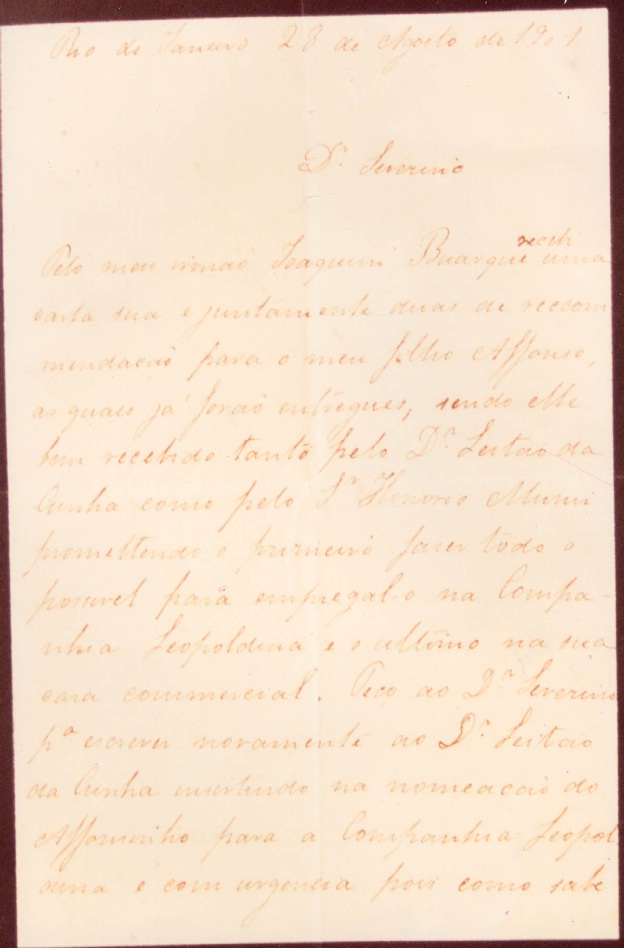 Rio de Janeiro 28 de Agosto de 1901
Dr. Severino
Pelo meu irmão Joaquim Buarque recebi uma
carta sua e juntamente duas de recom
mendação para o meu filho Affonso,
as quaes já forão entregues, sendo elle
bem recebido tanto pelo Dr. Leitão da
Cunha como pelo Sr. Honorio
promettendo o primeiro faser todo o
possivel para empregal-o na Compa-
nhia Leopoldina e o ultimo na sua
casa commercial. Peço ao Dr. Severino
pa. escrever novamente ao Dr. Leitão
da Cunha insistindo na nomeação do
Affonsinho para a Companhia Leopol
dina e com urgencia pois como sabe